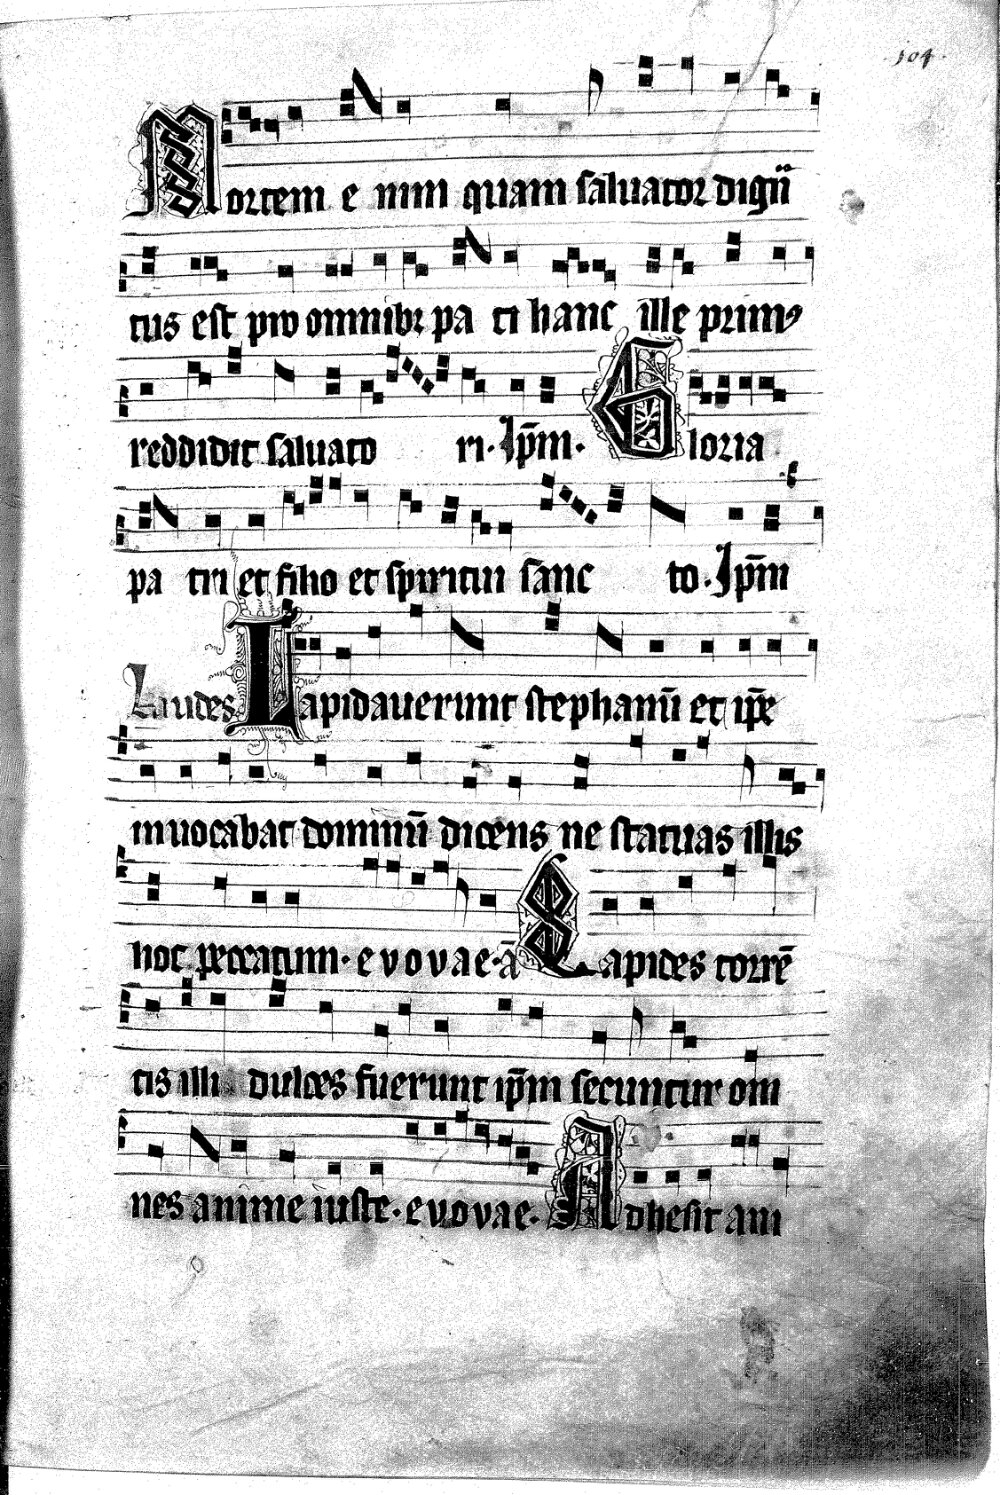 104
Mortem e nim quam saluator dignū
tus est pro omnibꝫ pa ti hanc ille primꝰ
reddidit saluato ri. Ip̄m. Gloria
pa tri et filio et spiritui sanc to. Ip̄m
Laudes Lapidauerunt stephanū et ip̄e
inuocabat dominū dicens ne statuas illis
hoc peccatum. e v o v a e. ā Lapides torrē
tis illi dulces fuerunt ip̄m secuntur om
nes anime iuste. e v o v a e. Adhesit ani